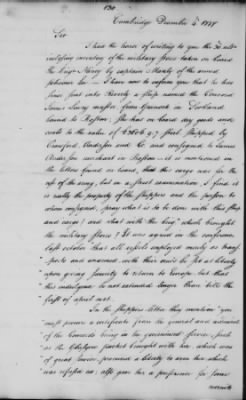 130
Cambridge December 4th 1775
Sir
I had the honor of writing to you the 30 ult
inclosing inventory of the military stores taken on board
the brig Nancy by captain Manly of the armed
schooner Lee - I have now to inform you that he has
since sent into Beverly a ship named the Concord
James Lowry master from Greenock in Scotland
bound to Boston, She has on board dry goods and
coals to the value of £3606.9.7 sterl. shipped by
Crawford Anderson and Co and consigned to James
Anderson merchant in Boston - it is mentioned in
the letters found on board, that this cargo was for the
use of the army, but on a strict examination I find it
is really the property of the shippers and the person to
whom consigned, pray what is to be done with this ship
and cargo? and what with the brig which brought
the military stores? It was agreed in the conference
last october "that all vessels employed merely as trans-
ports and unarmed, with their crews to be set at liberty
upon giving security to return to Europe, but that
this indulgence be not extended longer than till the
first of april next.
In the shippers letter they mention "you
must procure a certificate from the general and admiral
of the Concords being in the government service, such
as the Glasgow packet brought with her, which was
of great service, procured a liberty to arm her which
was refused us; also gave her a preference for some